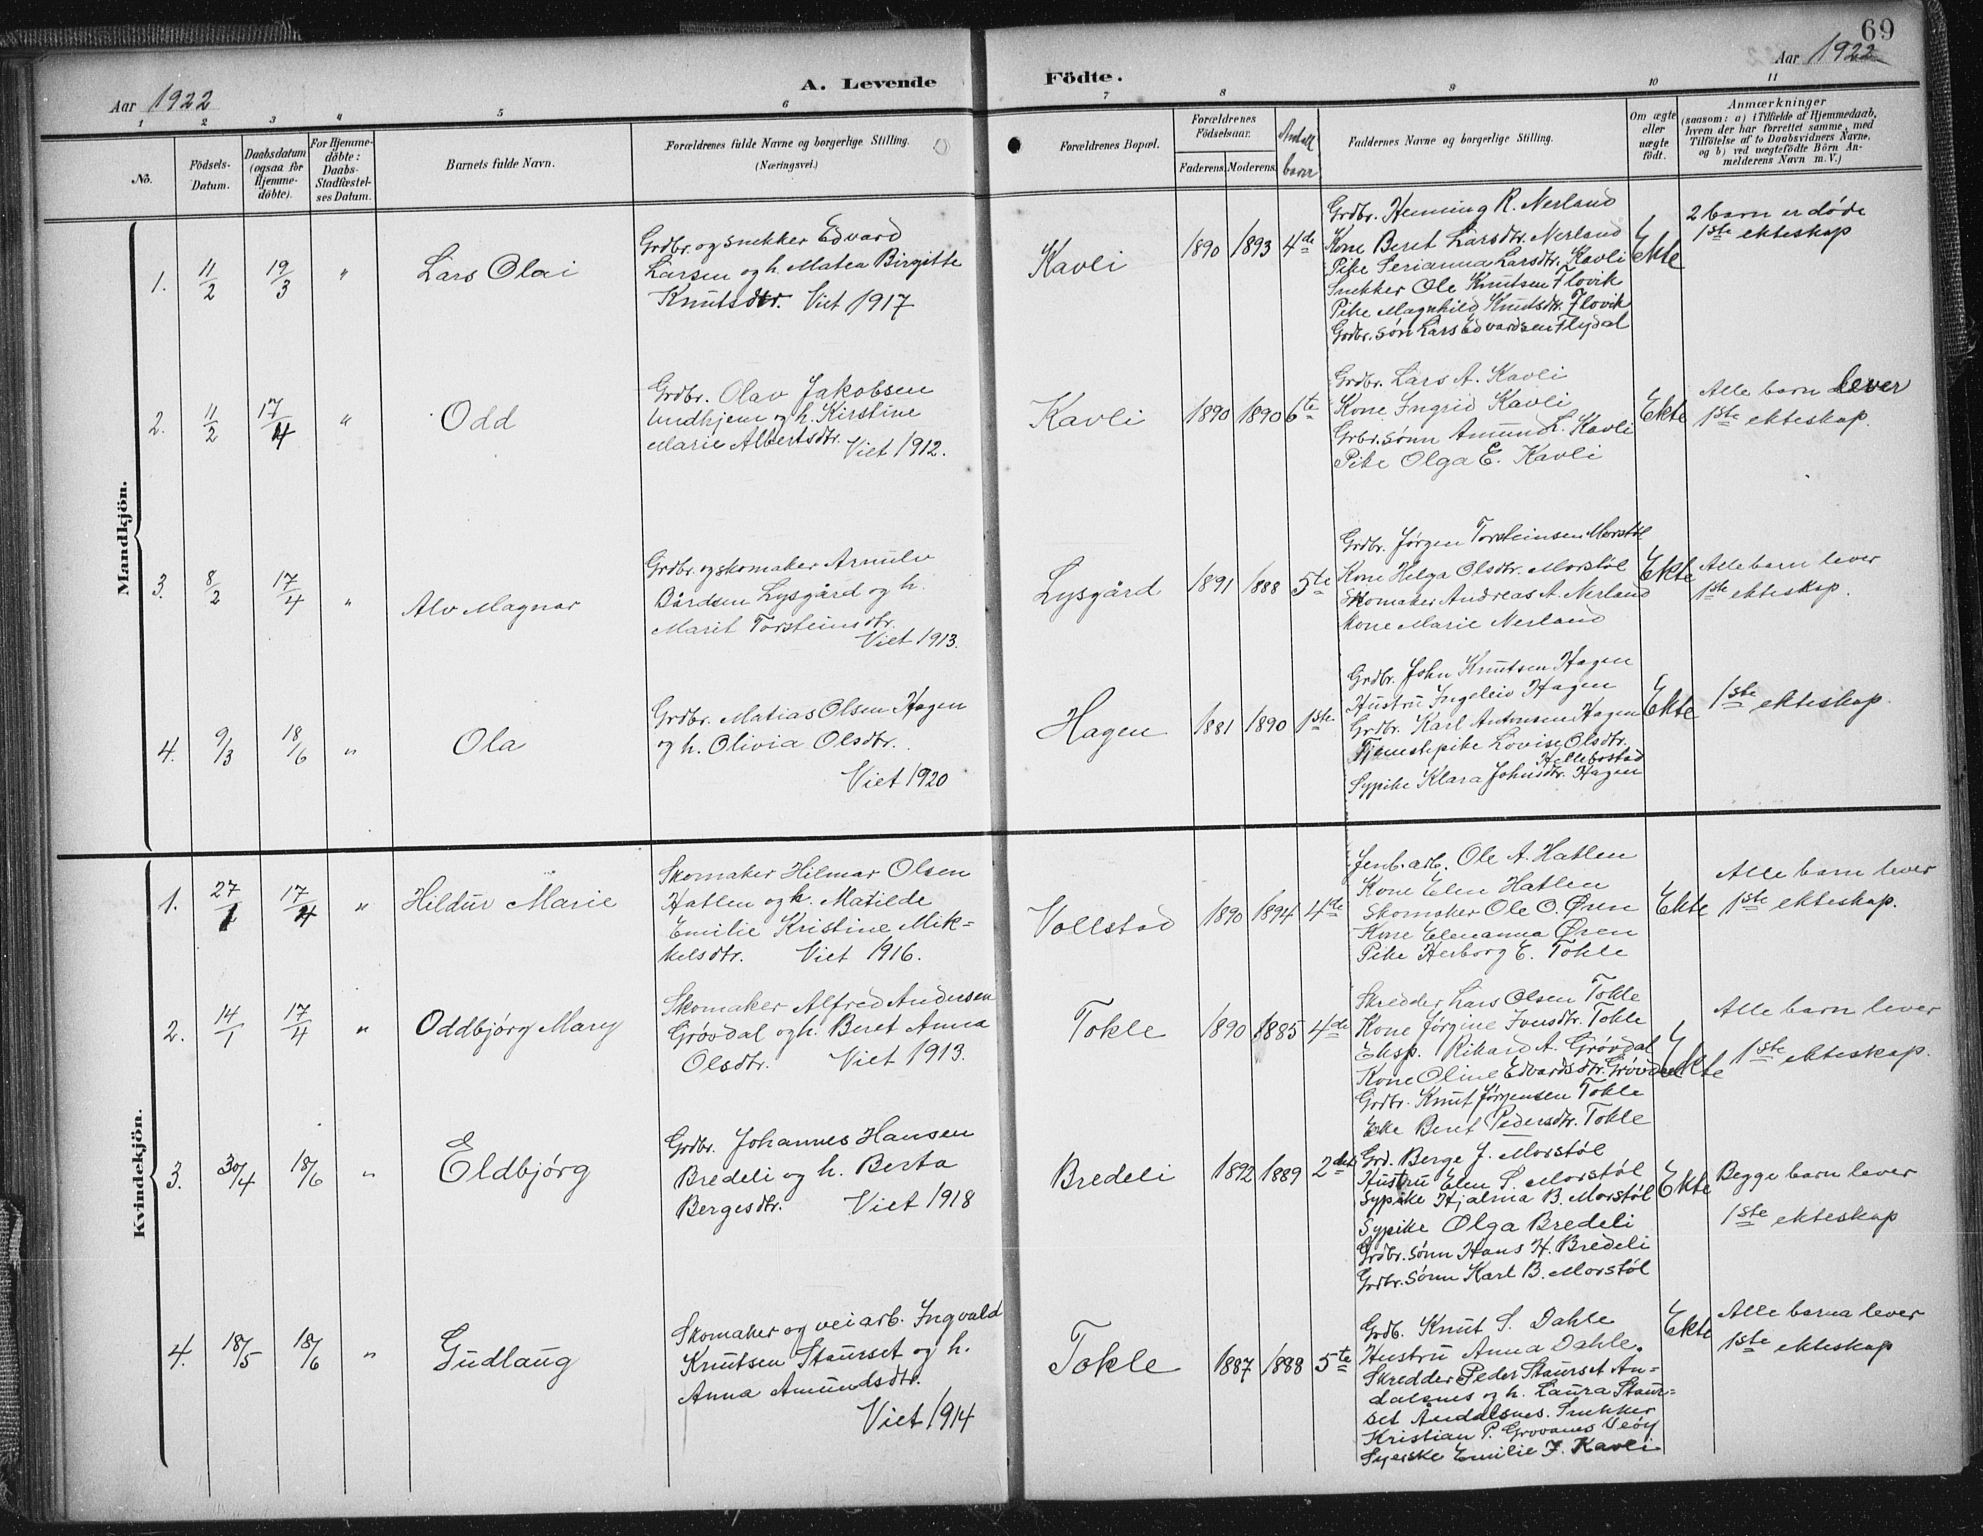 69
Aar 1922
A. Levende Födte.
Aar 1922
1 2 3 4 5 6 7 8 9 10 11
No.
Födsels-
Datum.
Daabsdatum
(ogsaa for
Hjemme-
döbte).
For Hjemme-
döbte:
Daabs-
Stadfæstel-
ses Datum.
Barnets fulde Navn.
Forældrenes fulde Navne og borgerlige Stilling.
(Næringsvei.)
Forældrenes Bopæl.
Forældrenes
Födselsaar.
Faderens. Moderens.
Antall
barn
Faddernes Navne og borgerlige Stilling.
Om ægte
eller
uægte
födt.
Anmærkninger
(saasom: a) i Tilfælde af Hjemmedaab,
hvem der har forrettet samme, med
Tilföielse af to Daabsvidners Navne,
og b) ved uægtefödte Börn An-
melderens Navn m. V.)
Mandkjön.
1. 11/2 19/3 "
Lars Olai
Grdbr. og snekker Edvard
Larsen og h. Matea Birgitte
Knutsdtr. Viet 1917
Kavli
1890 1893 4de
Grdbr. Henning R. Nerland
Kone Beret Larsdtr. Nerland
Pike Serianna Larsdtr. Kavli
Snekker Ole Knutsen Flovik
Pike Magnhild Knutsdtr. Flovik
Grdbr. søn Lars Edvardsen Flydal
Ekte
2 barn er døde
1ste ekteskap
2. 11/2 17/4 "
Odd
Grdbr. Olav Jakobsen
Undhjem og h. Kirstine
Marie Albertsdtr.
Viet 1912.
Kavli
1890 1890 6te
Grdbr. Lars A. Kavli
Kone Ingrid Kavli
Grbr. sønn Amund L. Kavli
Pike Olga E. Kavli
Ekte
Alle barn lever
1ste ekteskap.
3. 8/2 17/4 "
Alv Magnar
Grdbr. og skomaker Arnulv
Bårdsen Lysgård og h.
Marit Torsteinsdtr.
Viet 1913.
Lysgård
1891 1888 5te
Grdbr. Jørgen Torsteinsen Morstøl
Kone Helga Olsdtr. Morstøl
Skomaker Andreas A. Nerland
Kone Marie Nerland
Ekte
Alle barn lever
1ste ekteskap.
4. 9/3 18/6 "
Ola
Grdbr. Matias Olsen Hagen
og h. Olivia Olsdtr.
Viet 1920
Hagen
1881 1890 1ste
Grdbr. John Knutsen Hagen
Hustru Ingeleiv Hagen
Grdbr. Karl Antonsen Hagen
Tjenestepike Lovise Olsdtr.
Hellebostad
Sypike Klara Johnsdtr. Hagen
Ekte
1ste ekteskap.
Kvindekjön.
1. 27/1 17/4 "
Hildur Marie
Skomaker Hilmar Olsen
Hatlen og h. Matilde
Emilie Kristine Mik-
kelsdtr. Viet 1916.
Vollstad
1890 1894 4de
Jenb. arb. Ole A. Hatlen
Kone Elen Hatlen
Skomaker Ole O. Øren
Kone Elenanna Øren
Pike Herborg E. Tokle
Ekte
Alle barn lever
1ste ekteskap.
2. 14/1 17/4 "
Oddbjørg Mary
Skomaker Alfred Andersen
Grøvdal og h. Beret Anna
Olsdtr. Viet 1913.
Tokle
1890 1885 4de
Skredder Lars Olsen Tokle
Kone Jørgine Iversdtr. Tokle
Eksp. Rikard A. Grøvdal
Kone Oline Edvardsdtr. Grøvdal
Grdbr. Knut Jørgensen Tokle
Enke Beret Pedersdtr. Tokle
Ekte
Alle barn lever
1ste ekteskap.
3. 30/4 18/6 "
Eldbjørg
Grdbr. Johannes Hansen
Bredeli og h. Berta
Bergesdtr. Viet 1918
Bredeli
1892 1889 2det
Grd. Berge J. Morstøl
Hustru Elen S. Morstøl
Sypike Hjalma B. Morstøl
Sypike Olga Bredeli
Grdbr. sønn Hans H. Bredeli
Grdbr. sønn Karl B. Morstøl
Ekte
Begge barn lever
1ste ekteskap
4. 18/5 18/6 "
Gudlaug
Skomaker og veiarb. Ingvald
Knutsen Staurset og h.
Anna Amundsdtr.
Viet 1914
Tokle
1887 1888 5te
Grdb. Knut S. Dahle
Hustru Anna Dahle.
Skredder Peder Staurset An-
dalsnes og h. Laura Staur-
set Åndalsnes. Snekker
Kristian P. Grovanes Veøy
Syerske Emilie J. Kavli
Ekte
Alle barna lever
1ste ekteskap